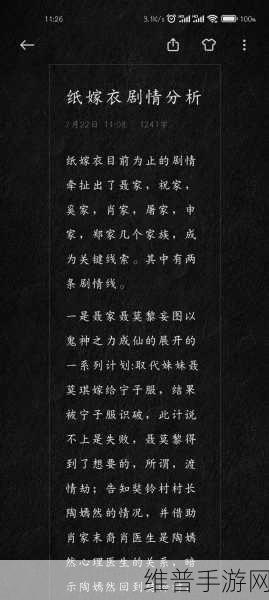 11:26
3.1K/s
100%
纸嫁衣剧情分析
7月22日 11:08 1241字
纸嫁衣目前为止的剧情
牵扯出了聂家，祝家，
奚家，肖家，屠家，申
家，郑家几个家族，成
为关键线索。其中有两
条剧情线。
一是聂家聂莫黎妄图以
鬼神之力成仙的展开的
一系列计划:取代妹妹聂
莫琪嫁给宁子服，结果
被宁子服识破，此计说
不上是失败，聂莫黎得
到了想要的，所谓，渡
情劫；告知奘铃村村长
陶嫣然的情况，并借助
肖家末裔肖医生是陶嫣
然心理医生的关系，暗
示陶嫣然回到
维普手游网